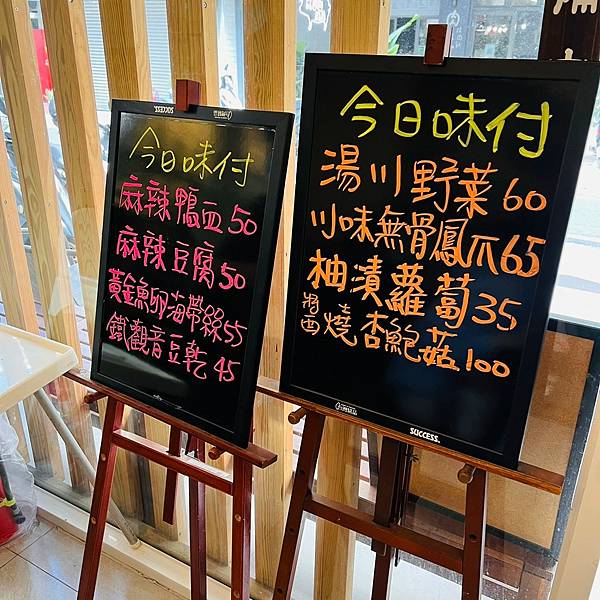 今日味付
麻辣鴨血50
麻辣豆腐50
黃金魚卵海帶絲55
鐵觀音豆乾45
今日味付
湯川野菜60
川味無骨鳳爪65
柚漬蘿蔔35
醬燒杏鮑菇100
SUCCESS.
SUCCESS.